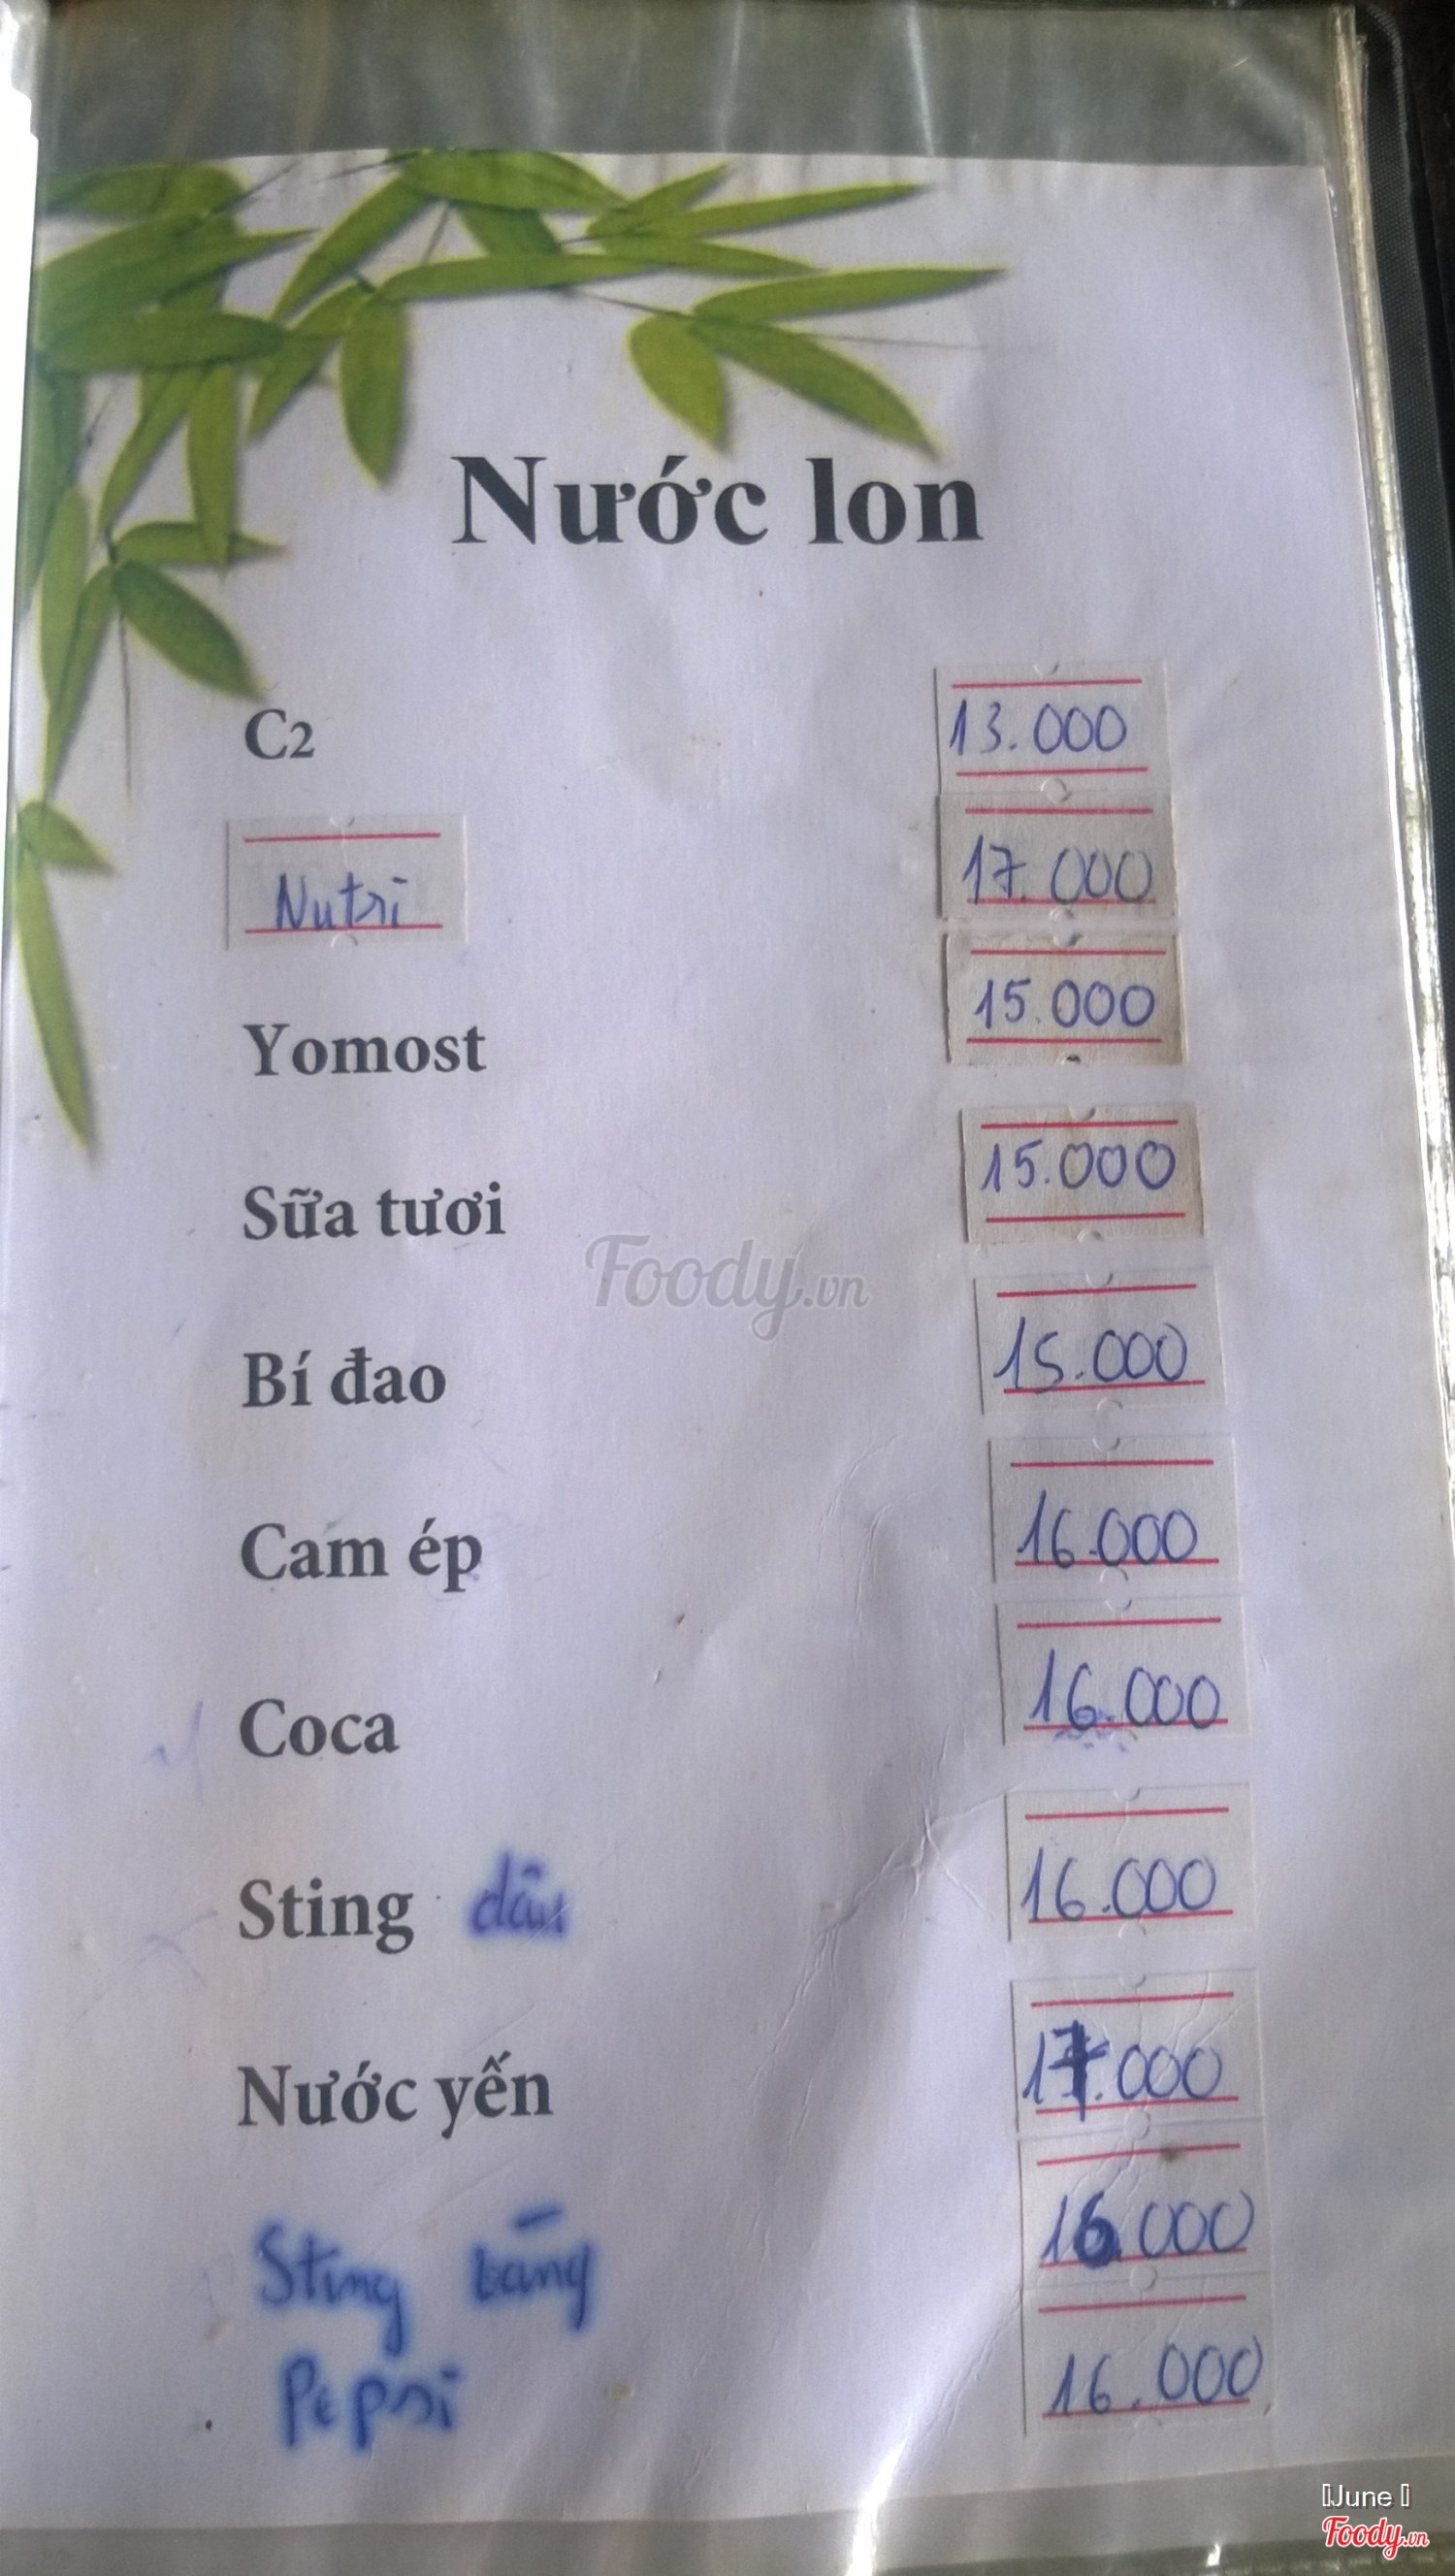 Nước lon
C2 13.000
Nutri 17.000
Yomost 15.000
Sữa tươi 15.000
Foody.vn
Bí đao 15.000
Cam ép 16.000
Coca 16.000
Sting dâu 16.000
Nước yến 17.000
Sting vàng 16.000
Pepsi 16.000
June
Foody.vn